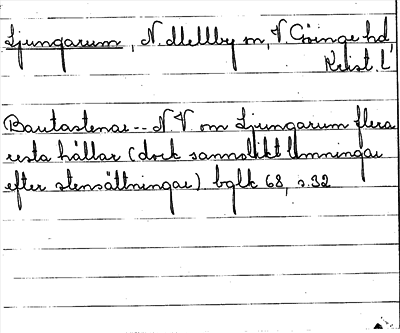 Ljungarum, N. Mellby sn, V. Göinge hd,
Krist. l.
Bautastenar -- N V om Ljungarum flera
resta hällar (dock sannolikt lämningar
efter stensättningar) bglk 68, s. 32